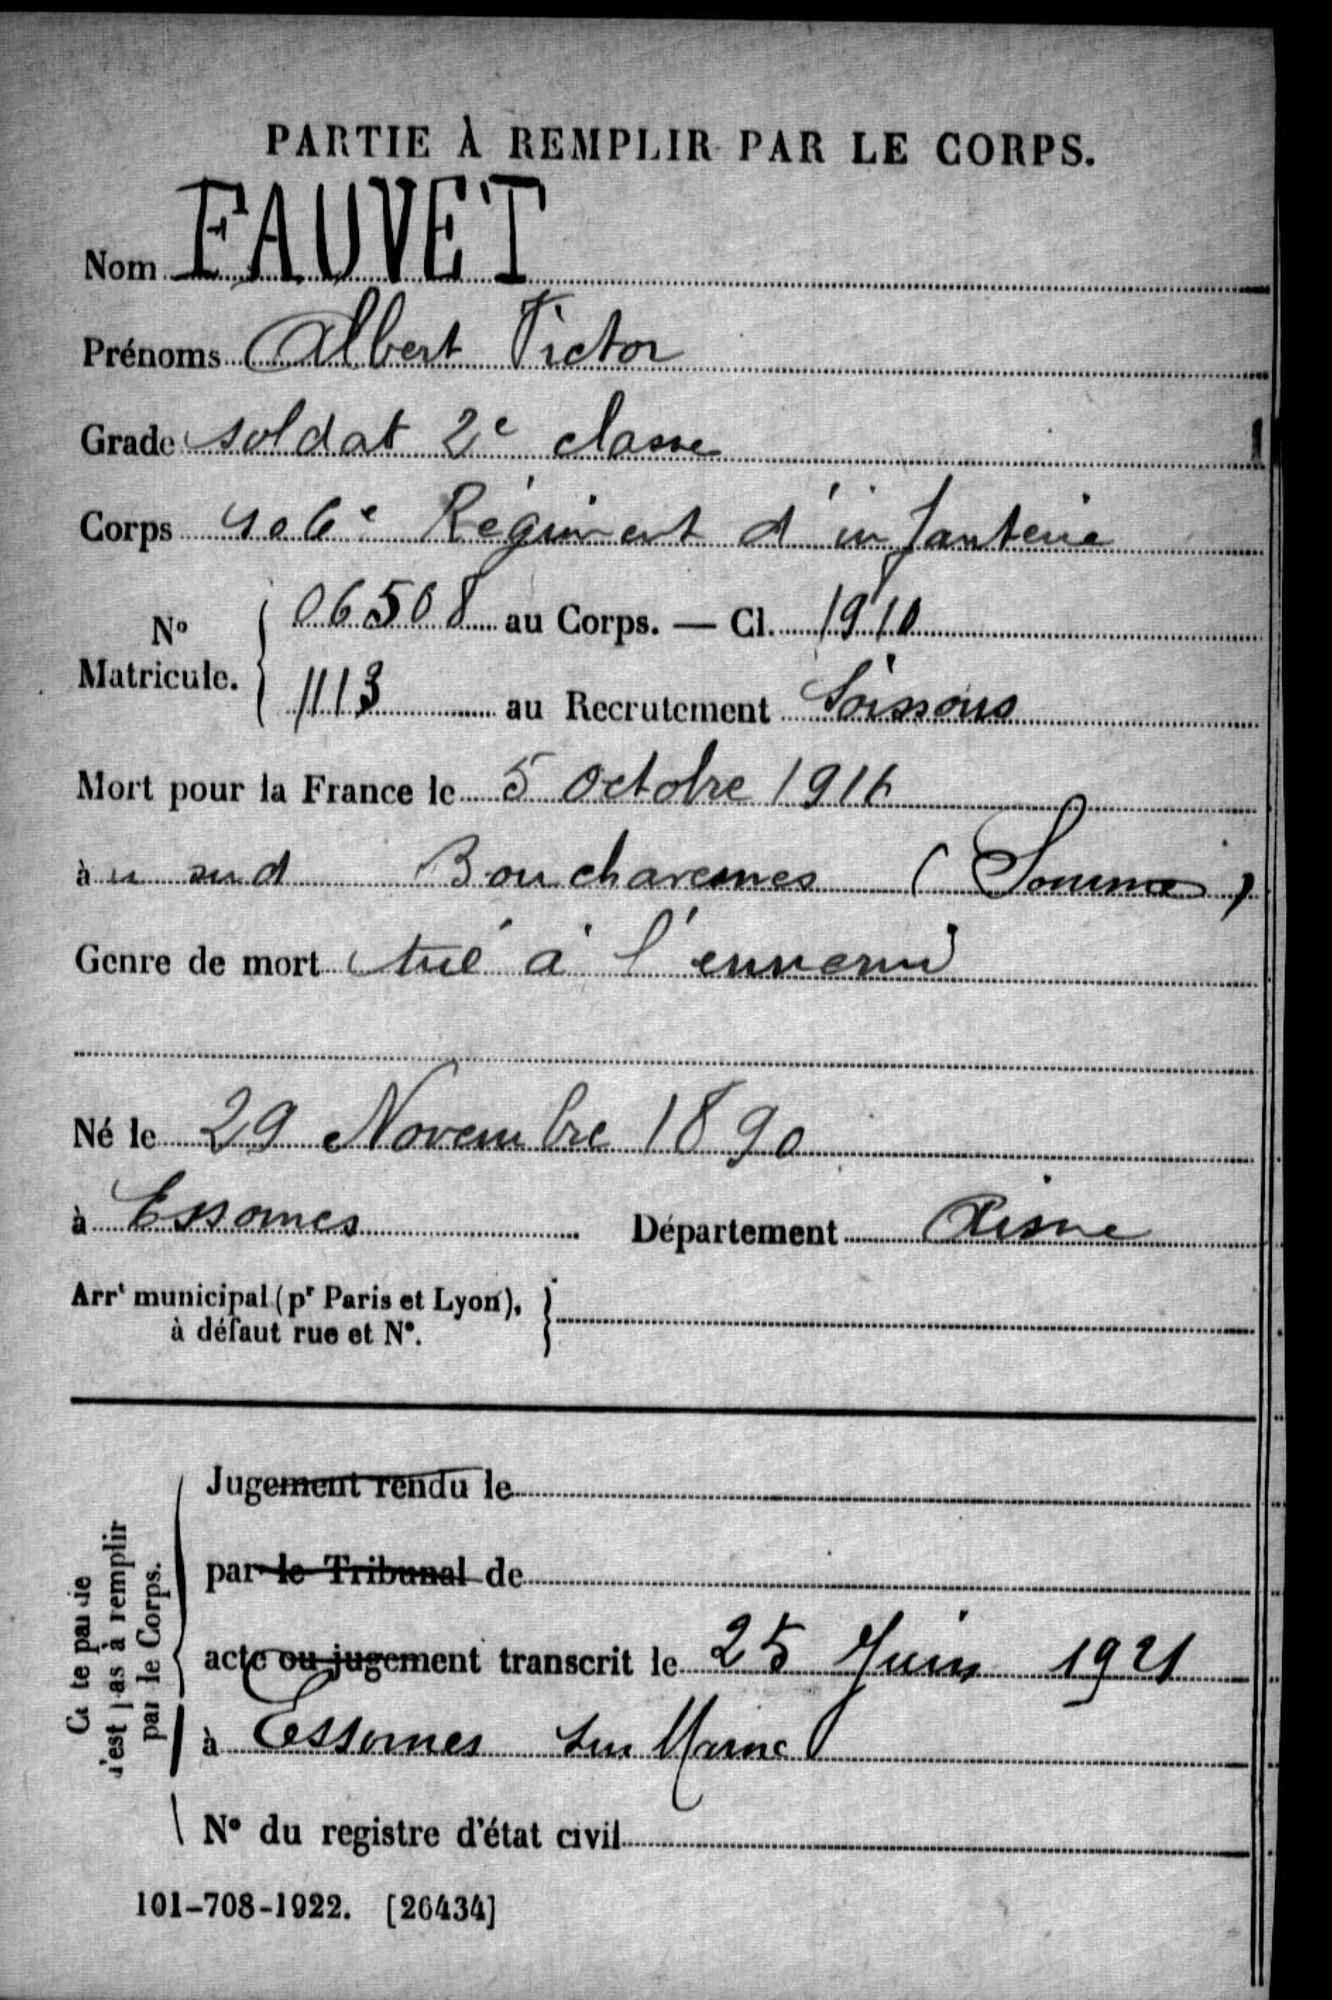 PARTIE À REMPLIR PAR LE CORPS.
Nom FAUVET
Prénoms Albert Victor
Grade soldat 2e classe
Corps 406e Régiment d'infanterie
No Matricule. { 06508 au Corps. — Cl. 1910
1113 au Recrutement Soissons
Mort pour la France le 5 Octobre 1916
à u sud Bouchavesnes (Somme)
Genre de mort tué à l'ennemi
Né le 29 Novembre 1890
à Essomes Département Aisne
Arrt municipal (pr Paris et Lyon), à défaut rue et No. }
Jugement rendu le
par le Tribunal de
acte ou jugement transcrit le 25 Juin 1921
à Essomes sur Marne
No du registre d'état civil
Ce te partie
n'est pas à remplir
par le Corps.
101-708-1922. [26434]